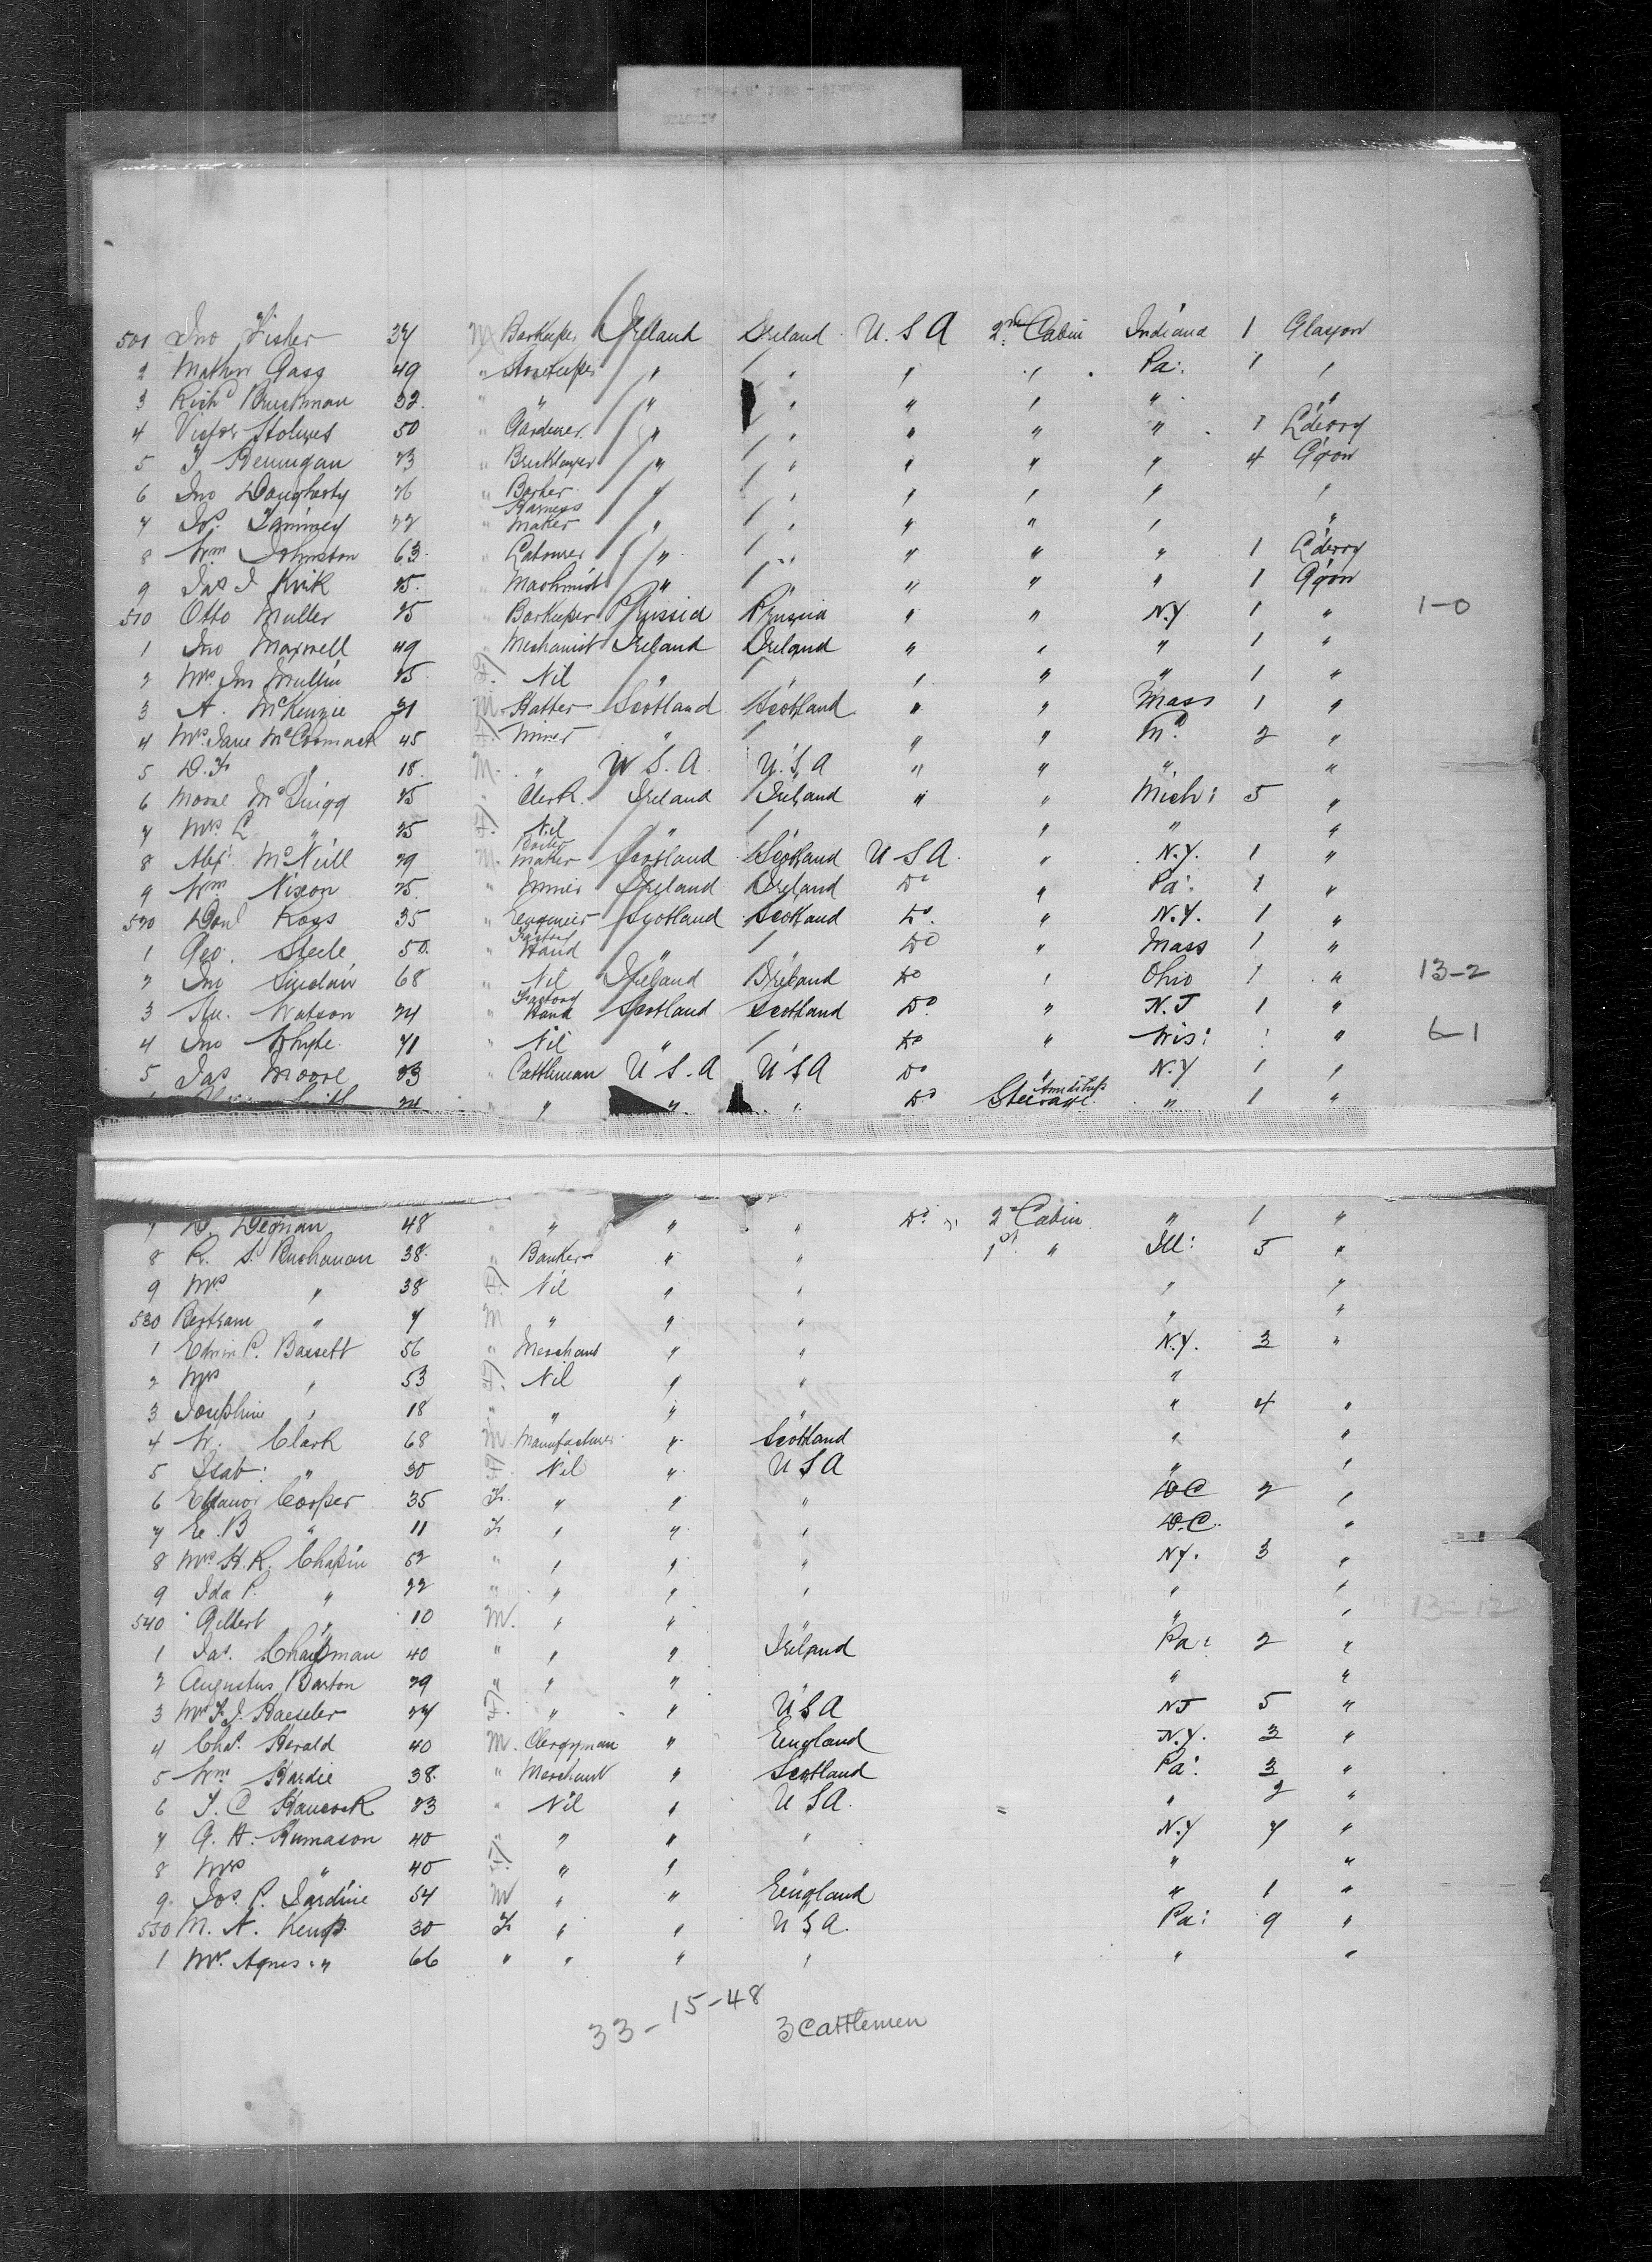 501 Jno Fisher 34 M Barkeeper Ireland Ireland U.S.A 2nd Cabin Indiana 1 Glasgow
2 Mathew Gass 49 " Storekeeper " " " " Pa: 1 "
3 Richd 32 " " " " " " " "
4 Victor 50 " Gardener " " " " " 1 L'derry
5 23 " Bricklayer " " " " " 4 G'gow
6 Jno Daugherty 26 " " " " " " "
7 Jos. 22 " Harness Maker " " " " " "
8 Wm Johnston 63 " Labourer " " " " " 1 L'derry
9 Jas J Kirk 25 " " " " " " 1 G'gow
510 Otto Muller 25 Barkeeper Prussia Prussia " " N.Y. 1 " 1-0
1 Jno Maxwell 49 " Mechanist Ireland Ireland " " " 1 "
2 Mrs Jno Mullin 25 F. Nil " " " " " 1 "
3 A. McKenzie 31 M. Hatter Scotland Scotland " " Mass 1 "
4 Mrs Jane McCormack 45 F. Miner " " " " 2 "
5 D. F. " 18 M. " U S. A. U.S.A " " " "
6 25 " Clerk Ireland Ireland " " Mich: 5 "
7 Mrs L " 25 F. Nil " " " " "
8 Alex. McNeill 29 M. Boiler Maker Scotland Scotland U S A. " N.Y. 1 "
9 Wm Nixon 25 " Ireland Ireland Do " Pa: 1 "
520 Danl 35 " Engineer Scotland Scotland Do. " N.Y. 1 "
1 Geo. Steele 50 " Factory Hand " " Do " Mass 1 "
2 Jno Sinclair 68 " Nil Ireland Ireland Do " Ohio 1 " 13-2
3 Watson 24 " Factory Hand Scotland Scotland Do " N.J 1 "
4 Jno Whyte 71 " Nil " " Do " Wis: "
5 Jas Moore 23 " Cattleman U.S.A U.S A Do " N.Y 1 "
Smith 24 " " " " Do Steerage " 1 "
7 D. Degnan 48 " " " " Do " 2nd Cabin " 1 "
8 R. S. Buchanan 38 " Banker " " 1st " Ill: 5 "
9 Mrs " 38 F. Nil " " " "
530 Bertram " 7 M " " " " "
1 Edwin P. Bassett 56 " Merchant " " N.Y. 3 "
2 Mrs " 53 F. Nil " " "
3 Josephine " 18 " " " " " 4 "
4 W. Clark 68 M Manufacturer " Scotland " "
5 Isab: " 30 F. Nil " U S A " "
6 Eleanor Cooper 35 F. " " " D C 2 "
7 E. B " 11 F. " " " D.C. "
8 Mrs H. R. Chapin 52 " " " " NY. 3 "
9 Ida P. " 22 " " " " " "
540 Gilbert " 10 M. " " " " " 13-12
1 Jas. Chapman 40 " " " Ireland Pa: 2 "
2 Augustus Barton 29 " " " " "
3 Mrs F. J. Haeseler 27 F. " " U S A NJ 5 "
4 Chas. Herald 40 M. Clergyman " England N.Y. 3 "
5 Wm Hardie 38 " Merchant " Scotland Pa: 3 "
6 J. C Hancock 23 " Nil " U S A. " 2 "
7 G. H. Rumason 40 " " " " N.Y 7 "
8 Mrs " 40 F. " " " "
9 Jos. P. Jardine 54 M " " England " 1 "
550 M. A. Kemp 30 F " " U S A. Pa: 9 "
1 Mrs. Agnes " 66 " " " " " "
33-15-48 3 Cattlemen